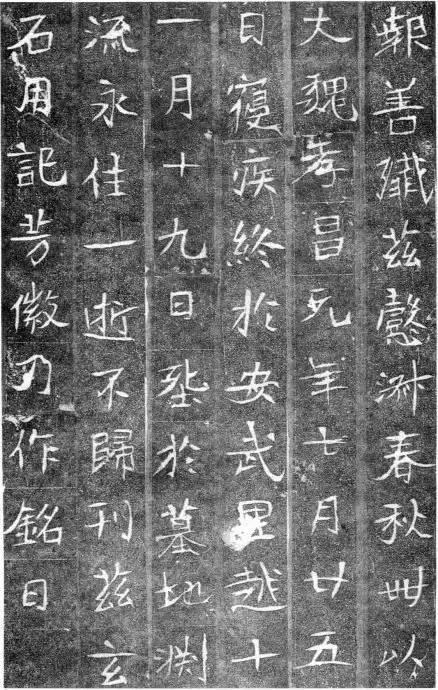 報善殲茲懿淑春秋丗以
大魏孝昌元年七月廿五
日寢疾終於安武里越十
一月十九日塟於墓地渕
流永住一逝不歸刊茲玄
石用記芳徽乃作銘曰